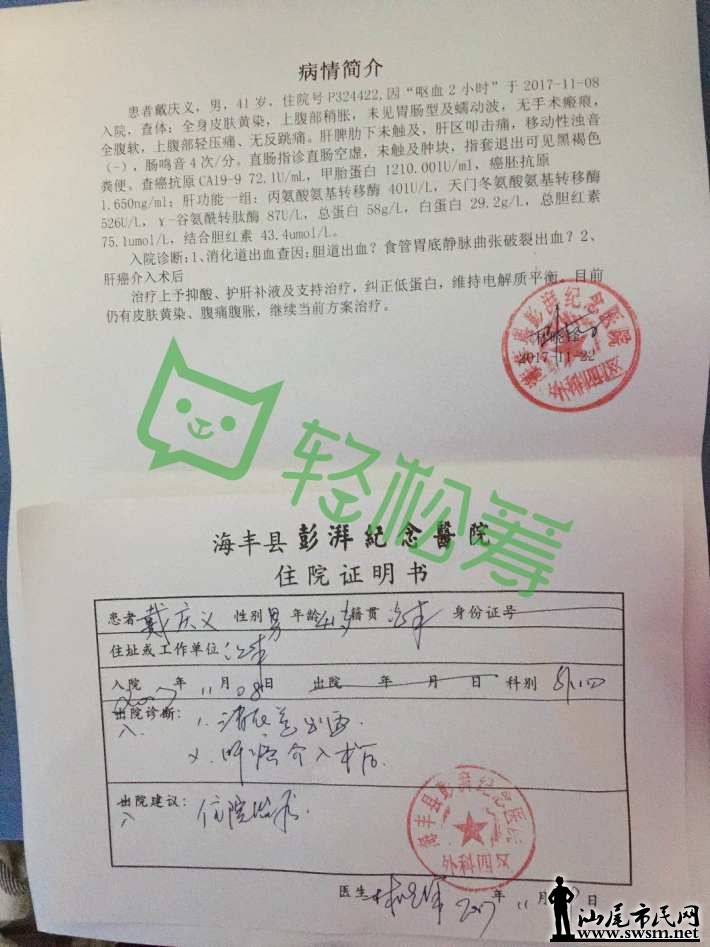 病情简介
患者戴庆义，男，41 岁，住院号 P324422,因“呕血 2 小时”于 2017-11-08
入院，查体：全身皮肤黄染，上腹部稍胀，未见胃肠型及蠕动波，无手术瘢痕，
全腹软，上腹部轻压痛、无反跳痛。肝脾肋下未触及，肝区叩击痛，移动性浊音
(—)，肠鸣音 4 次/分。直肠指诊直肠空虚，未触及肿块，指套退出可见黑褐色
粪便。查癌抗原 CA19-9 72.1U/mL，甲胎蛋白 1210.001U/ml，癌胚抗原
1.650ng/ml；肝功能一组：丙氨酸氨基转移酶 401U/L，天门冬氨酸氨基转移酶
526U/L，Y-谷氨酰转肽酶 87U/L，总蛋白 58g/L，白蛋白 29.2g/L，总胆红素
75.1umol/L，结合胆红素 43.4umol/L。
入院诊断:1、消化道出血查因：胆道出血？食管胃底静脉曲张破裂出血？2、
肝癌介入术后
治疗上予抑酸、护肝补液及支持治疗，纠正低蛋白，维持电解质平衡。目前
仍有皮肤黄染、腹痛腹胀，继续当前方案治疗。
海丰县彭湃纪念医院
2017-11-22
外科四区
轻松筹
海丰县彭湃紀念醫院
住院证明书
患者 戴庆义 性别 男 年龄 41岁 籍贯 海丰 身份证号
住址或工作单位 海丰
入院 2017年 11月 08日 出院 年 月 日 科别 外四
出院诊断： 1. 消化道出血
入 2. 肝癌介入术后.
出院建议： 住院治疗.
入
海丰县彭湃纪念医院
外科四区
医生 2017年 11月 日
汕尾市民网
www.swsm.net